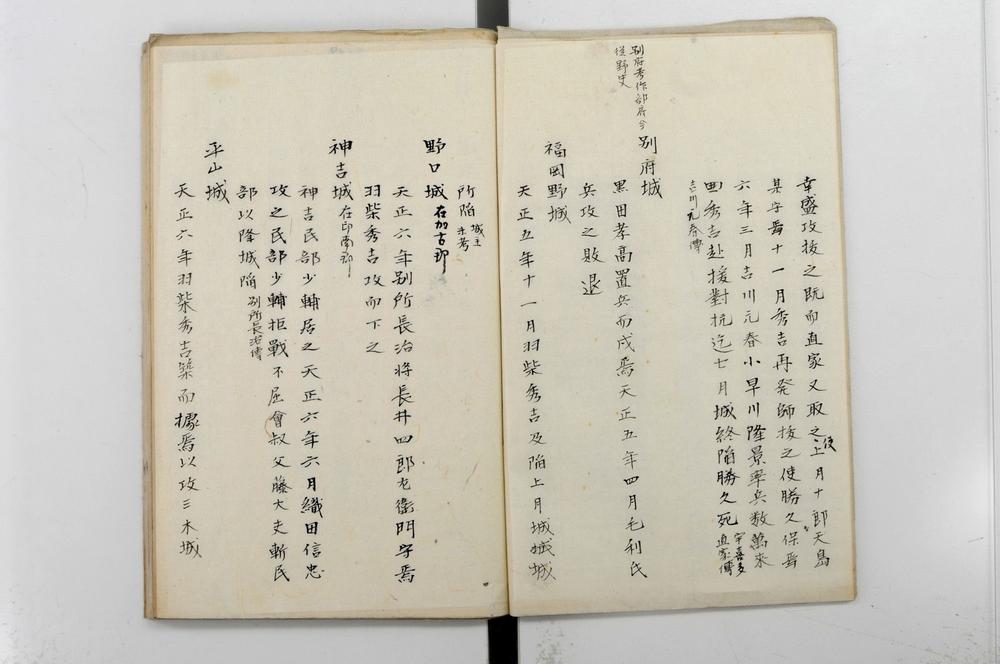 幸盛攻抜之既而直家又取之使上月十郎天島
某守焉十一月秀吉再発師抜之使勝久保焉
六年三月吉川元春小早川隆景率兵数萬来
囲秀吉赴援對抗迄七月城終陥勝久死宇喜多直家傳
吉川元春傳
別府秀作部府今
従野史
別府城
黒田孝高置兵而戍焉天正五年四月毛利氏
兵攻之敗退
福岡野城
天正五年十一月羽柴秀吉及陥上月城城城
所陥城主未考
野口城在加古郡
天正六年別所長治将長井四郎左衛門守焉
羽柴秀吉攻而下之
神吉城在印南郡
神吉民部少輔居之天正六年六月織田信忠
攻之民部少輔拒戰不屈會叔父藤大夫斬民
部以降城陥別所長治傳
平山城
天正六年羽柴秀吉築而據焉以攻三木城